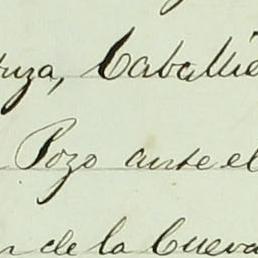 uza, Caballe
Pozo ante el
de la Cueva